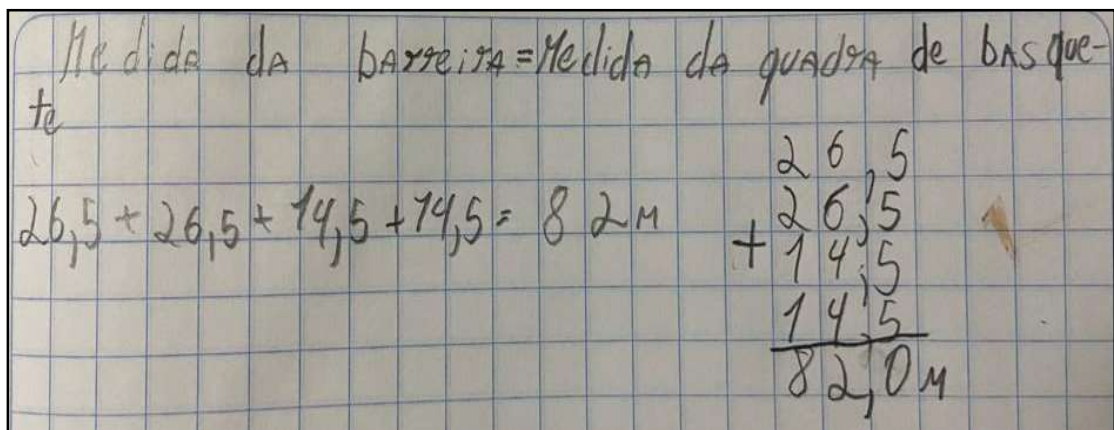 Medida da barreira = Medida da quadra de basque-
te
26,5 + 26,5 + 14,5 + 14,5 = 82 M
26,5
26,5
+ 14,5
14,5
82,0 M